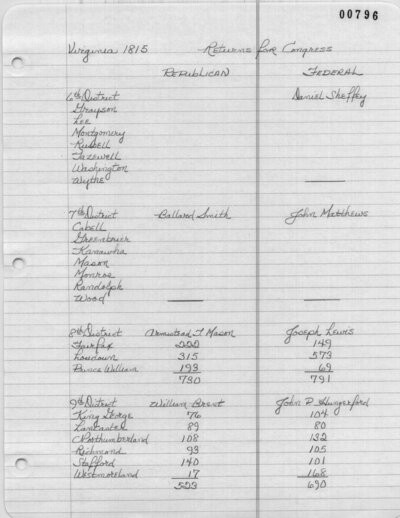 00796
Virginia 1815 Returns for Congress
REPUBLICAN FEDERAL
6th District Daniel Sheffey
Grayson
Lee
Montgomery
Russell
Tazewell
Washington
Wythe
7th District Ballard Smith John Matthews
Cabell
Greenbrier
Kanawha
Mason
Monroe
Randolph
Wood
8th District Armistead T Mason Joseph Lewis
Fairfax 222 149
Loudoun 315 573
Prince William 193 69
730 791
9th District William Brent John P Hungerford
King George 76 104
Lancaster 89 80
Northumberland 108 132
Richmond 93 105
Stafford 140 101
Westmoreland 17 168
523 690